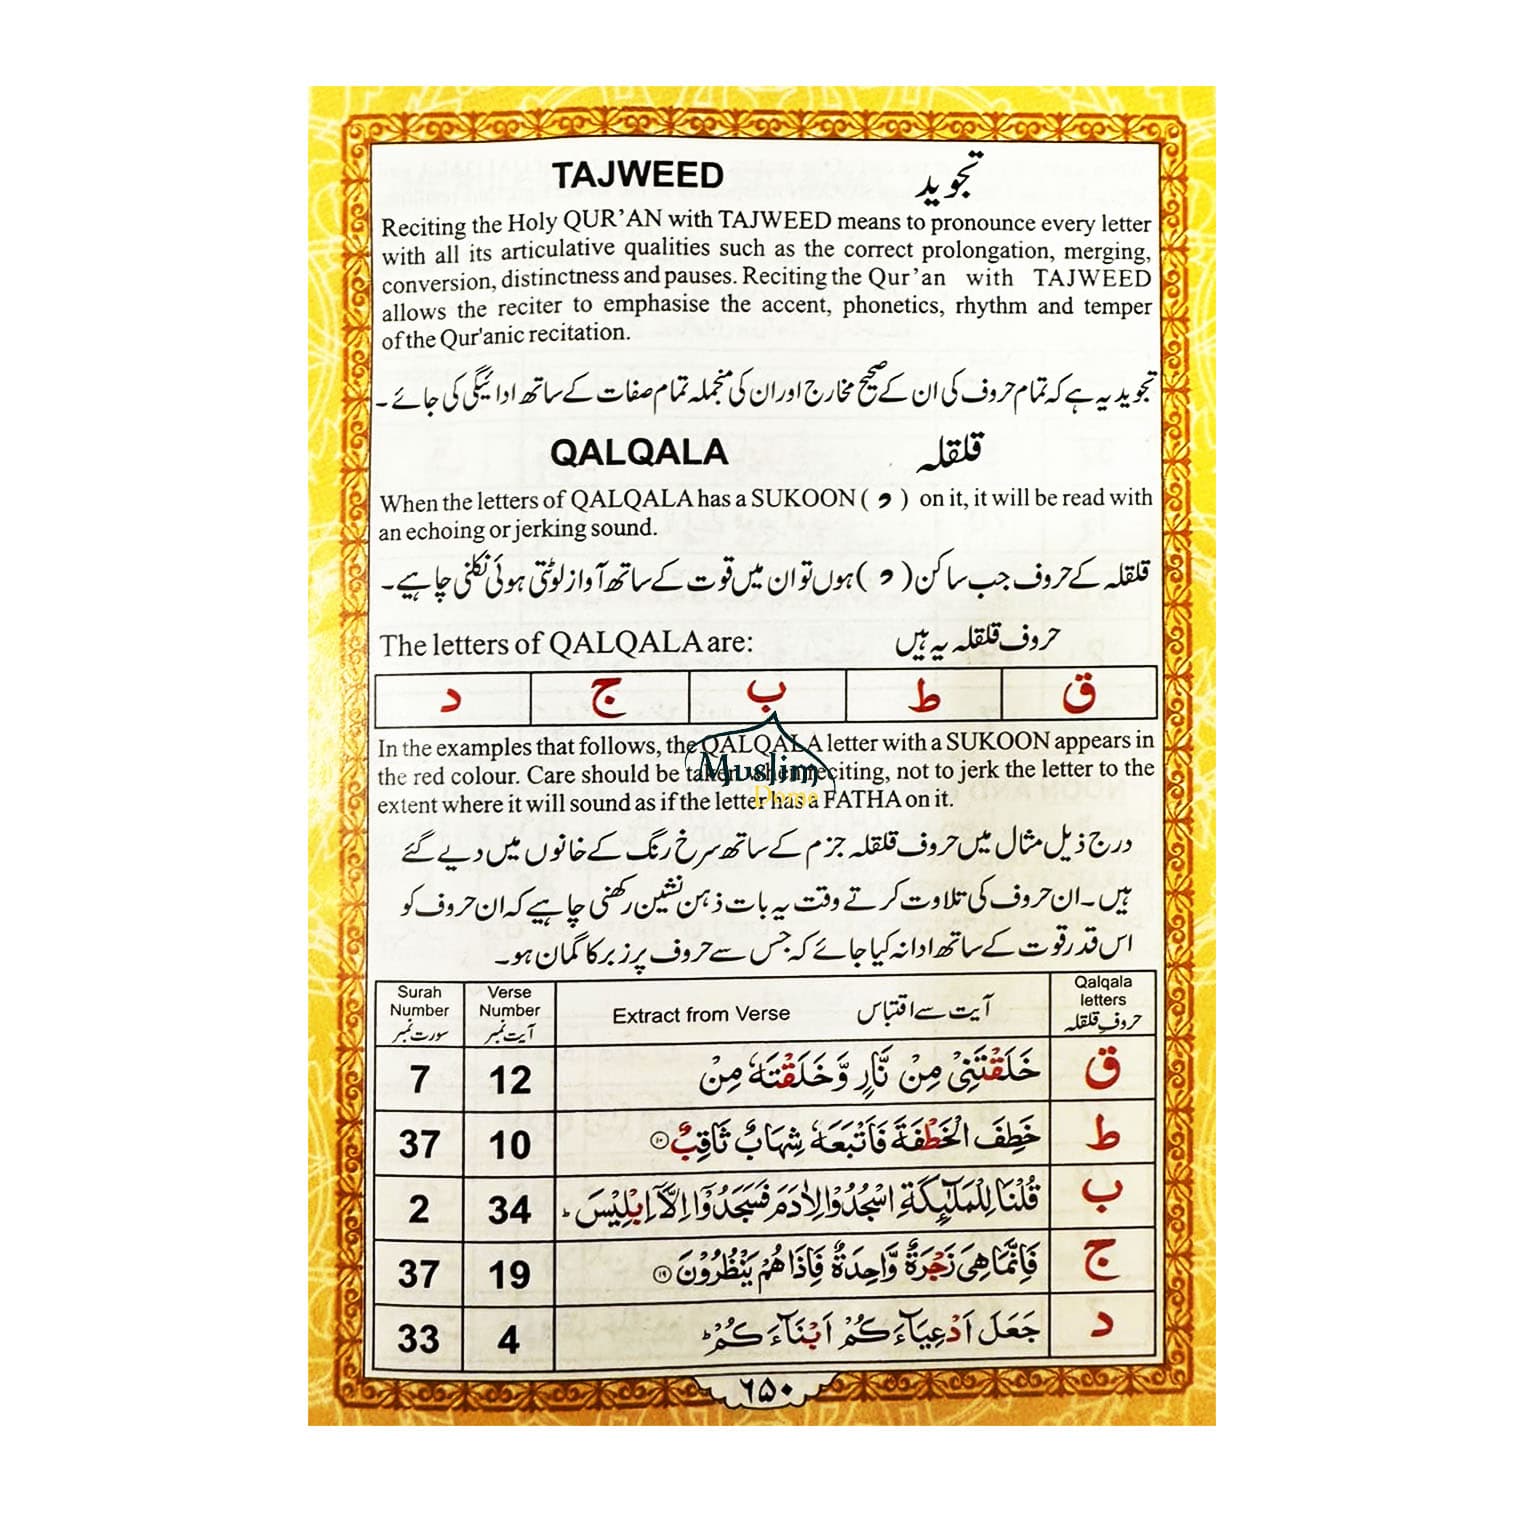 TAJWEED تجوید
Reciting the Holy QUR'AN with TAJWEED means to pronounce every letter
with all its articulative qualities such as the correct prolongation, merging,
conversion, distinctness and pauses. Reciting the Qur'an with TAJWEED
allows the reciter to emphasise the accent, phonetics, rhythm and temper
of the Qur'anic recitation.
تجوید یہ ہے کہ تمام حروف کی ان کے صحیح مخارج اور ان کی منجملہ تمام صفات کے ساتھ ادائیگی کی جائے ۔
QALQALA قلقلہ
When the letters of QALQALA has a SUKOON ( و ) on it, it will be read with
an echoing or jerking sound.
قلقلہ کے حروف جب ساکن ( و ) ہوں تو ان میں قوت کے ساتھ آواز لوٹتی ہوئی نکلنی چاہیے۔
The letters of QALQALA are: حروف قلقلہ یہ ہیں
ق ط ب ج د
In the examples that follows, the QALQALA letter with a SUKOON appears in
the red colour. Care should be taken when reciting, not to jerk the letter to the
extent where it will sound as if the letter has a FATHA on it.
Muslim
Dome
درج ذیل مثال میں حروف قلقلہ جزم کے ساتھ سرخ رنگ کے خانوں میں دیے گئے
ہیں۔ ان حروف کی تلاوت کرتے وقت یہ بات ذہن نشین رکھنی چاہیے کہ ان حروف کو
اس قدر قوت کے ساتھ ادا نہ کیا جائے کہ جس سے حروف پر زبر کا گمان ہو۔
Surah Number سورت نمبر
Verse Number آیت نمبر
Extract from Verse آیت سے اقتباس
Qalqala letters حروف قلقلہ
7 12 خَلَقْتَنِیْ مِنْ نَّارٍ وَّخَلَقْتَهٗ مِنْ ق
37 10 خَطِفَ الْخَطْفَةَ فَاَتْبَعَهٗ شِهَابٌ ثَاقِبٌ ۱۰ ط
2 34 قُلْنَا لِلْمَلٰٓئِكَةِ اسْجُدُوْا لِاٰدَمَ فَسَجَدُوْٓا اِلَّآ اِبْلِیْسَ ؕ ب
37 19 فَاِنَّمَا هِیَ زَجْرَةٌ وَّاحِدَةٌ فَاِذَا هُمْ یَنْظُرُوْنَ ۱۹ ج
33 4 جَعَلَ اَدْعِیَآءَكُمْ اَبْنَآءَكُمْ ؕ د
۶۵۰